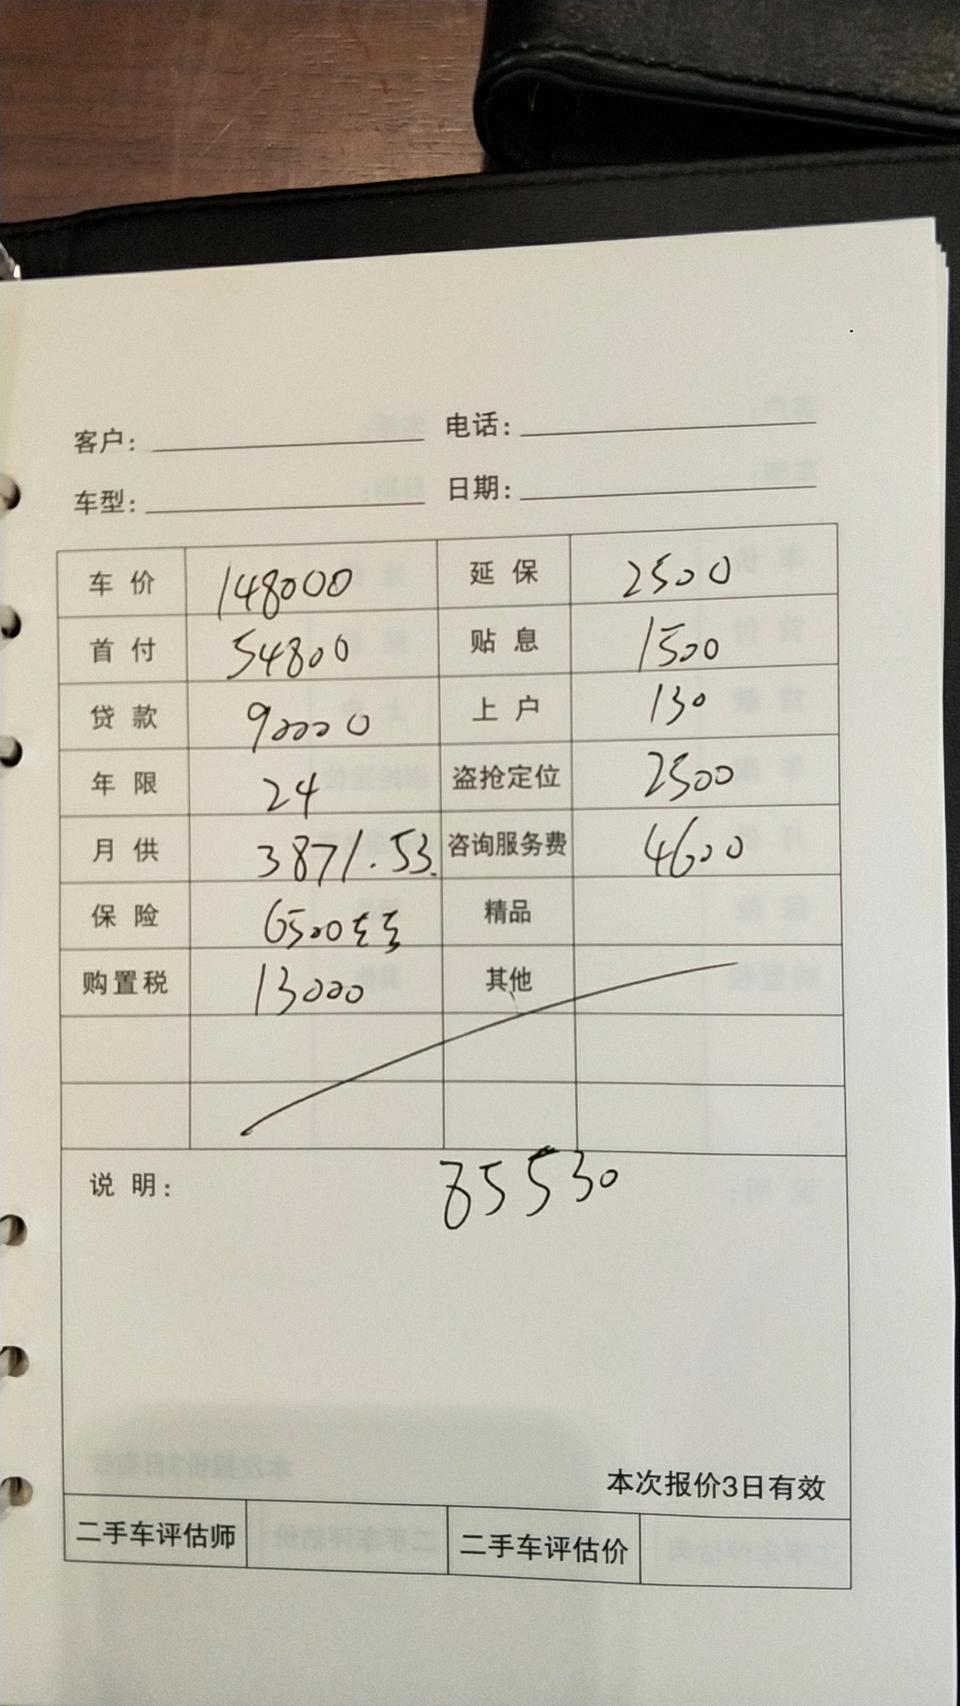 客户： 电话：
车型： 日期：
车价 148000 延保 2500
首付 54800 贴息 1500
贷款 90000 上户 130
年限 24 盗抢定位 2500
月供 3871.53. 咨询服务费 4600
保险 6500 精品
购置税 13000 其他
说明： 85530
本次报价3日有效
二手车评估师 二手车评估价